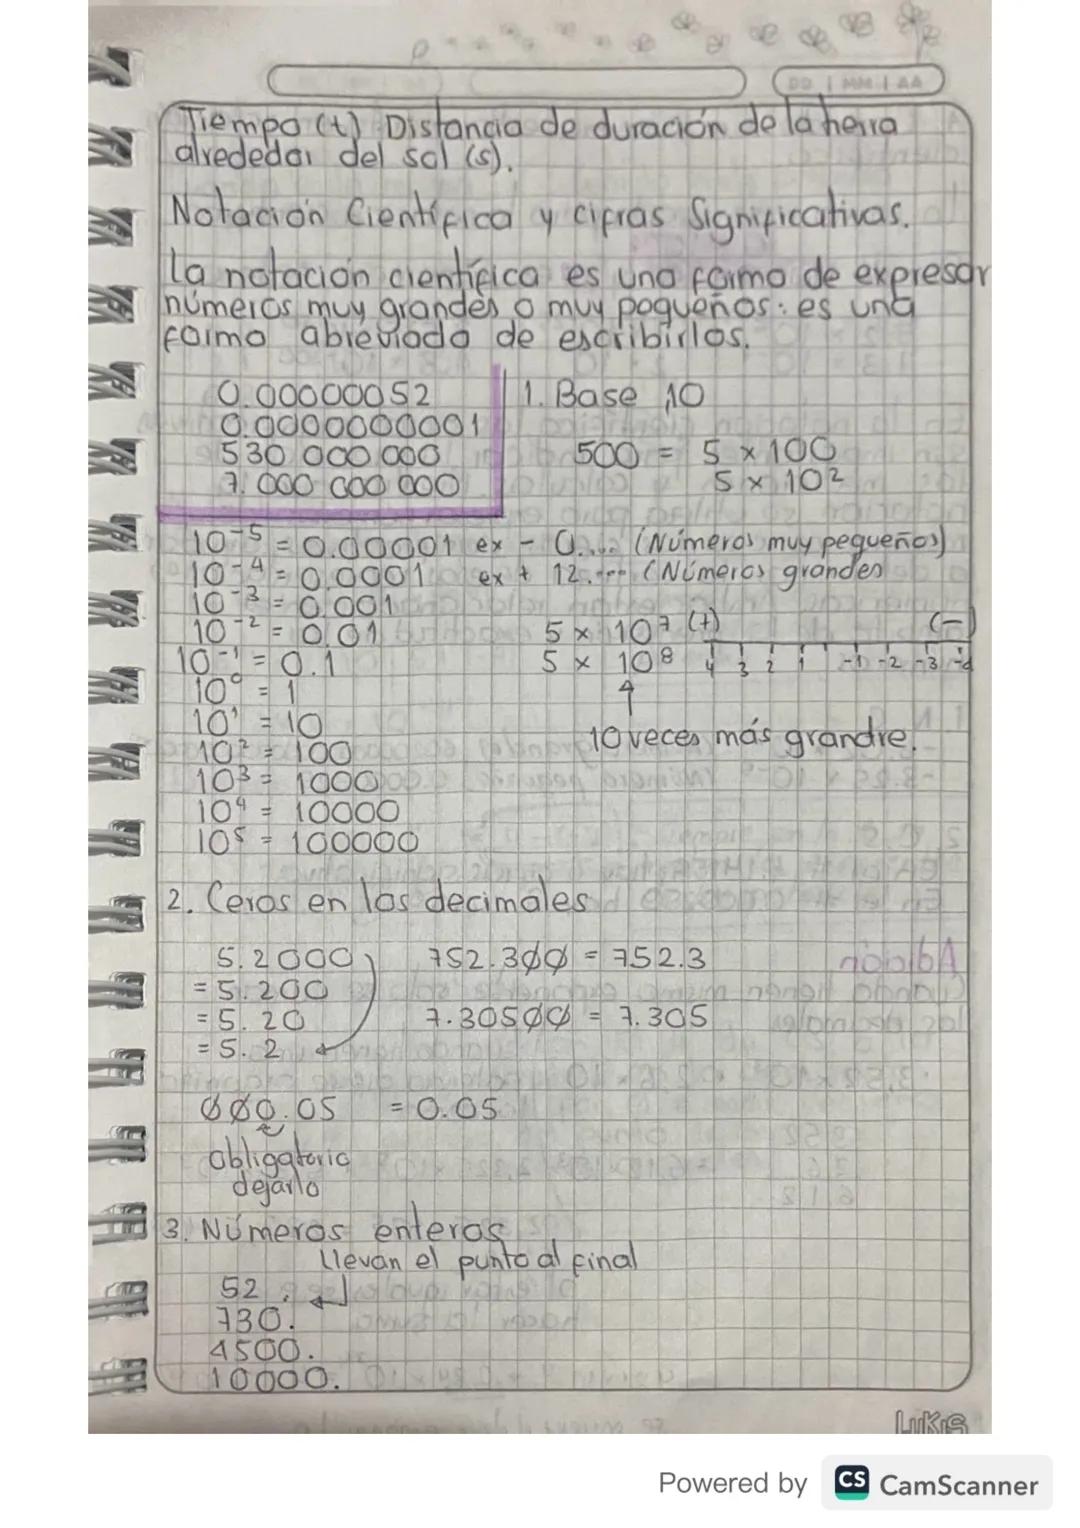 DD | MM | AA
Tiempo (t) Distancia de duración de la herra
alrededor del sol (s).
Notación Científica y cifras Significativas.
La notación científica es una forma de expresar
números muy grandes o muy pequeños: es una
forma abreviada de escribirlos.
0.00000052
0.0000000001
530 000 000
7. 000 000 000
1. Base 10
500 = 5 x 100
5 x 10²
10⁻⁵ = 0.00001 ex - 0.... (Números muy pequeños)
10⁻⁴ = 0.0001 ex + 12.--- (Números grandes
10⁻³ = 0.001
10⁻² = 0.01
10⁻¹ = 0.1
10⁰ = 1
10¹ = 10
10² = 100
10³ = 1000
10⁴ = 10000
10⁵ = 100000
5 x 10⁷ (+) (-)
5 x 10⁸ 4 3 2 1 -1 -2 -3 -4
10 veces más grandre.
2. Ceros en los decimales
5.2000
= 5.200
= 5.20
= 5.2
752.300 = 752.3
7.30500 = 7.305
000.05 = 0.05
obligatorio
dejarlo
3. Números enteros
llevan el punto al final
52.
730.
4500.
10000.
LUKIS
Powered by CS CamScanner